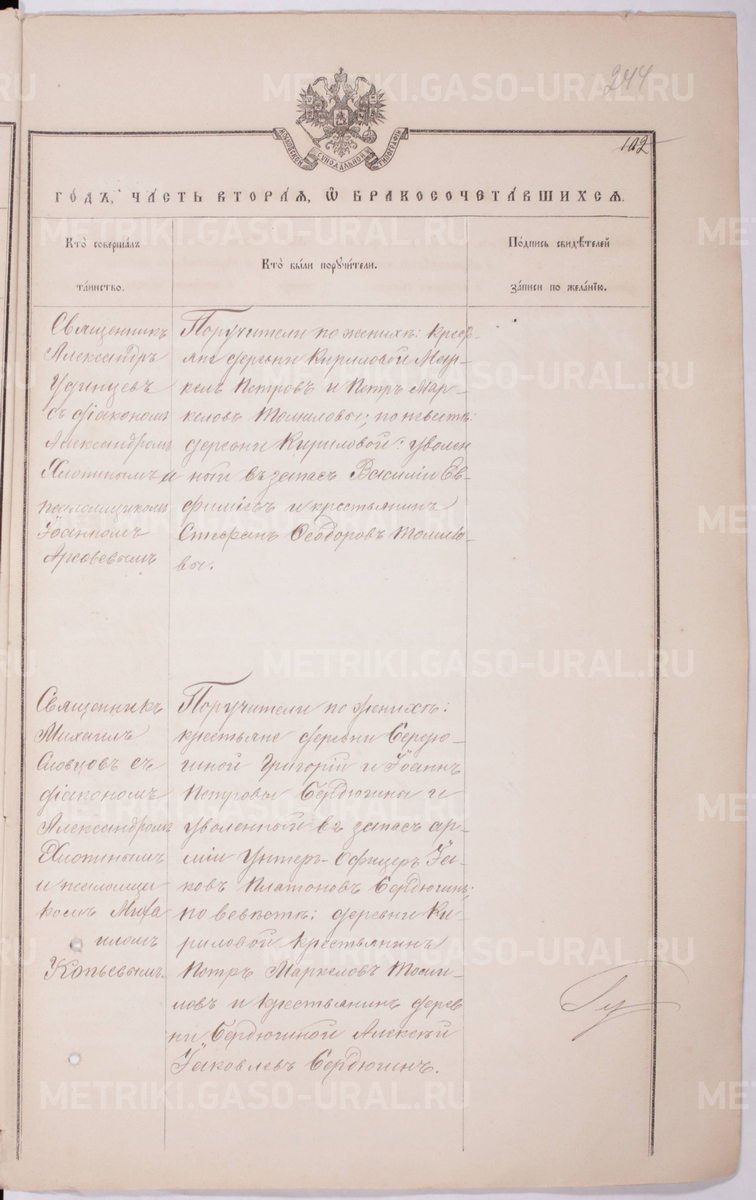 METRIKI.GASO-URAL.RU
244
МОСКОВСКОЙ СѴНОДАЛЬНОЙ ТИПОГРАФІИ
102
ГО́ДЪ, ЧАСТЬ ВТОРАЯ, Ѡ҆ БРАКОСОЧЕТА́ВШИХСЯ.
Кто̀ соверша́лъ
та́инство.
Кто̀ бы́ли порꙋчи́тели.
По́дпись свидѣ́телей
за́писи по жела́нїю.
Священникъ
Александръ
Удинцевъ
съ діакономъ
Александромъ
Хлопинымъ и
псаломщикомъ
Іоанномъ
Поручители по женихѣ: кресть-
яне деревни Кириловой Мар-
келъ Петровъ и Петръ Мар-
келовъ Томиловы; по невѣстѣ:
деревни Кириловой: уволен
ный въ запасъ Василій Ев-
фиміевъ и крестьянинъ
Стефанъ Ѳеодоровъ Томило-
вы.
Священникъ
Михаилъ
Словцовъ съ
діакономъ
Александромъ
Хлопинымъ
и псаломщи
комъ Миха
иломъ
Копьевымъ
Поручители по женихѣ:
крестьяне деревни Сердю-
гиной Григорій и Іоаннъ
Петровы Сердюгины и
уволенный въ запасъ ар-
міи Унтеръ-Офицеръ Іа-
ковъ Платоновъ Сердюгинъ;
по невѣстѣ: деревни Ки-
риловой крестьянинъ
Петръ Маркеловъ Томи-
ловъ и крестьянинъ дерев
ни Сердюгиной Алексѣй
Іаковлевъ Сердюгинъ.